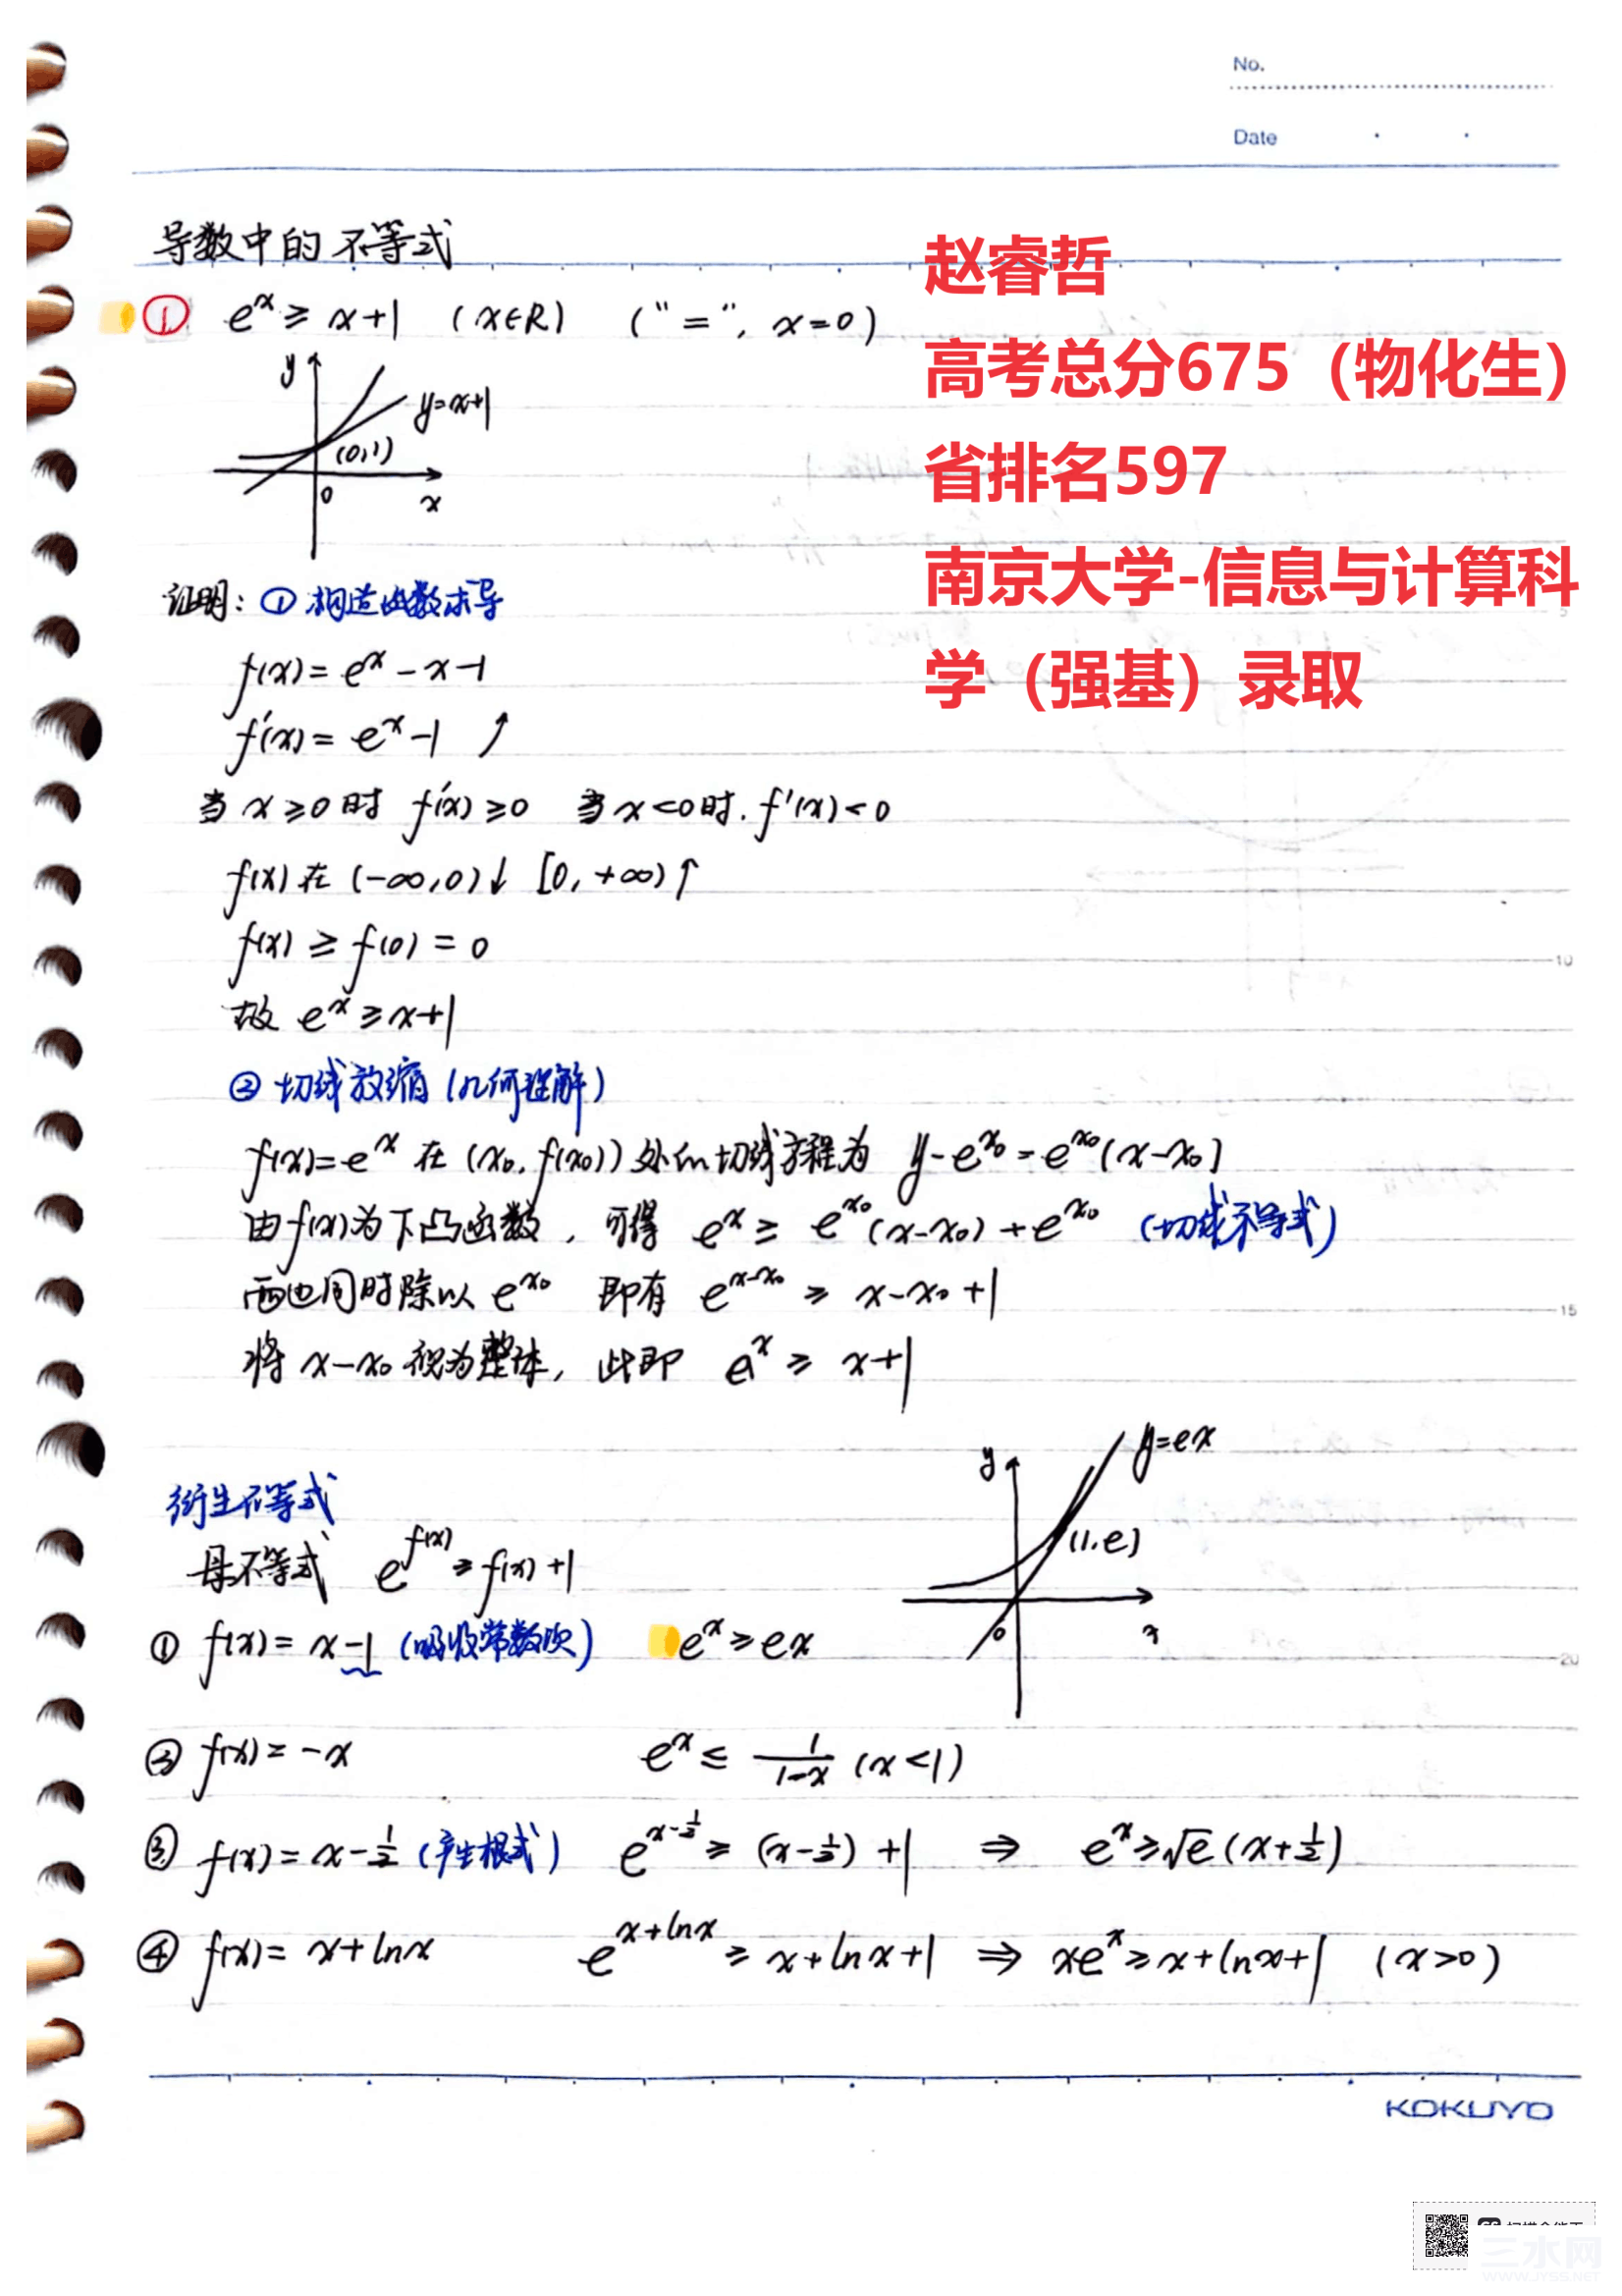 No.
Date
导数中的不等式
赵睿哲
① eˣ ≥ x+1 (x∈R) ("=", x=0)
高考总分675（物化生）
y
y=x+1
(0,1)
0
x
省排名597
南京大学-信息与计算科
学（强基）录取
证明：① 构造函数求导
f(x) = eˣ - x - 1
f'(x) = eˣ - 1 ↗
当 x ≥ 0 时 f'(x) ≥ 0 当 x < 0 时. f'(x) < 0
f(x) 在 (-∞,0)↓ [0,+∞)↑
f(x) ≥ f(0) = 0
10
故 eˣ ≥ x+1
② 切线放缩 (几何理解)
f(x)=eˣ 在 (x₀, f(x₀)) 处的切线方程为 y-e^x₀ = e^x₀(x-x₀)
由 f(x) 为下凸函数，可得 eˣ ≥ e^x₀(x-x₀) + e^x₀ (切线不等式)
两边同时除以 e^x₀ 即有 e^(x-x₀) ≥ x-x₀+1
15
将 x-x₀ 视为整体，此即 eˣ ≥ x+1
y
y=ex
(1,e)
0
x
衍生不等式
母不等式 e^f(x) ≥ f(x)+1
① f(x) = x-1 (吸收常数项) eˣ ≥ ex
20
② f(x) = -x eˣ ≤ 1/(1-x) (x<1)
③ f(x) = x-1/2 (产生根式) e^(x-1/2) ≥ (x-1/2)+1 ⇒ eˣ ≥ √e(x+1/2)
④ f(x) = x+lnx e^(x+lnx) ≥ x+lnx+1 ⇒ xeˣ ≥ x+lnx+1 (x>0)
KOKUYO
三水网
WWW.JYSS.NET